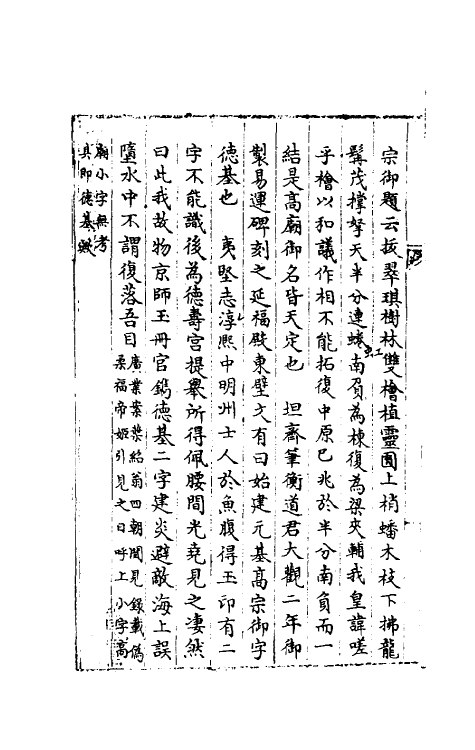 宗御題云拔翠琪樹林雙檜植靈囿上梢蟠木枝下拂龍
髯茂撐拏天半分連蜷南負為棟復為梁夾輔我皇諱嗟
乎檜以和議作相不能拓復中原已兆於半分南負而一
結是高廟御名皆天定也　坦齋筆衡道君大觀二年御
製易運碑刻之延福殿東壁文有曰始建元基高宗御字
德基也　夷堅志淳熙中明州士人於魚腹得玉印有二
字不能識後為德壽宮提舉所得佩腰間光堯見之淒然
曰此我故物京師玉冊官鐫德基二字建炎避敵海上誤
墮水中不謂復落吾目廣業案葉紹翁四朝聞見錄載偽
柔福帝姬引見之日呼上小字高
廟小字無考
其即德基歟